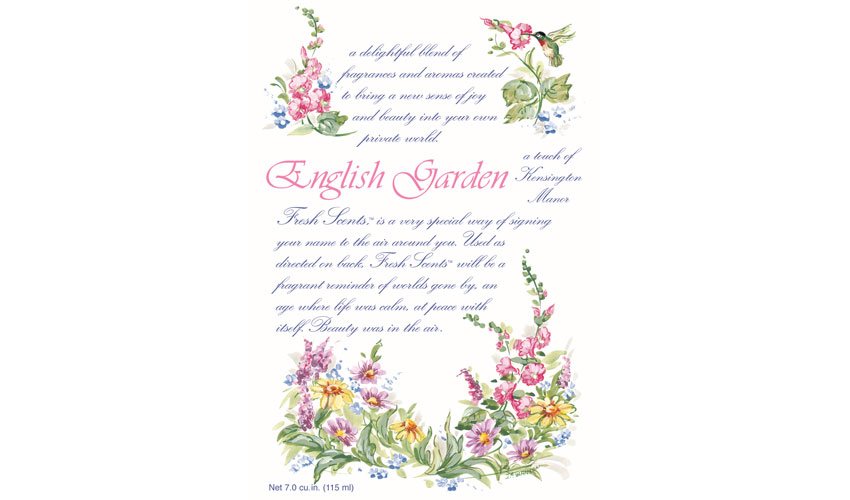 a delightful blend of
fragrances and aromas created
to bring a new sense of joy
and beauty into your own
private world.
English Garden
a touch of
Kensington
Manor
Fresh Scents,™ is a very special way of signing
your name to the air around you. Used as
directed on back, Fresh Scents™ will be a
fragrant reminder of worlds gone by, an
age where life was calm, at peace with
itself. Beauty was in the air.
Net 7.0 cu.in. (115 ml)